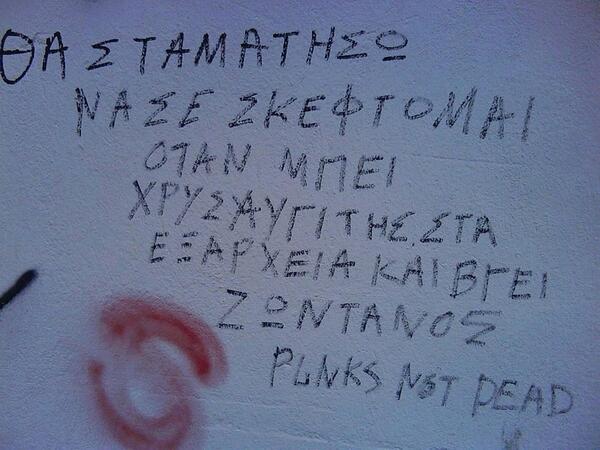 ΘΑ ΣΤΑΜΑΤΗΣΩ
ΝΑ ΣΕ ΣΚΕΦΤΟΜΑΙ
ΟΤΑΝ ΜΠΕΙ
ΧΡΥΣΑΥΓΙΤΗΣ ΣΤΑ
ΕΞΑΡΧΕΙΑ ΚΑΙ ΒΓΕΙ
ΖΩΝΤΑΝΟΣ
PUNKS NOT DEAD